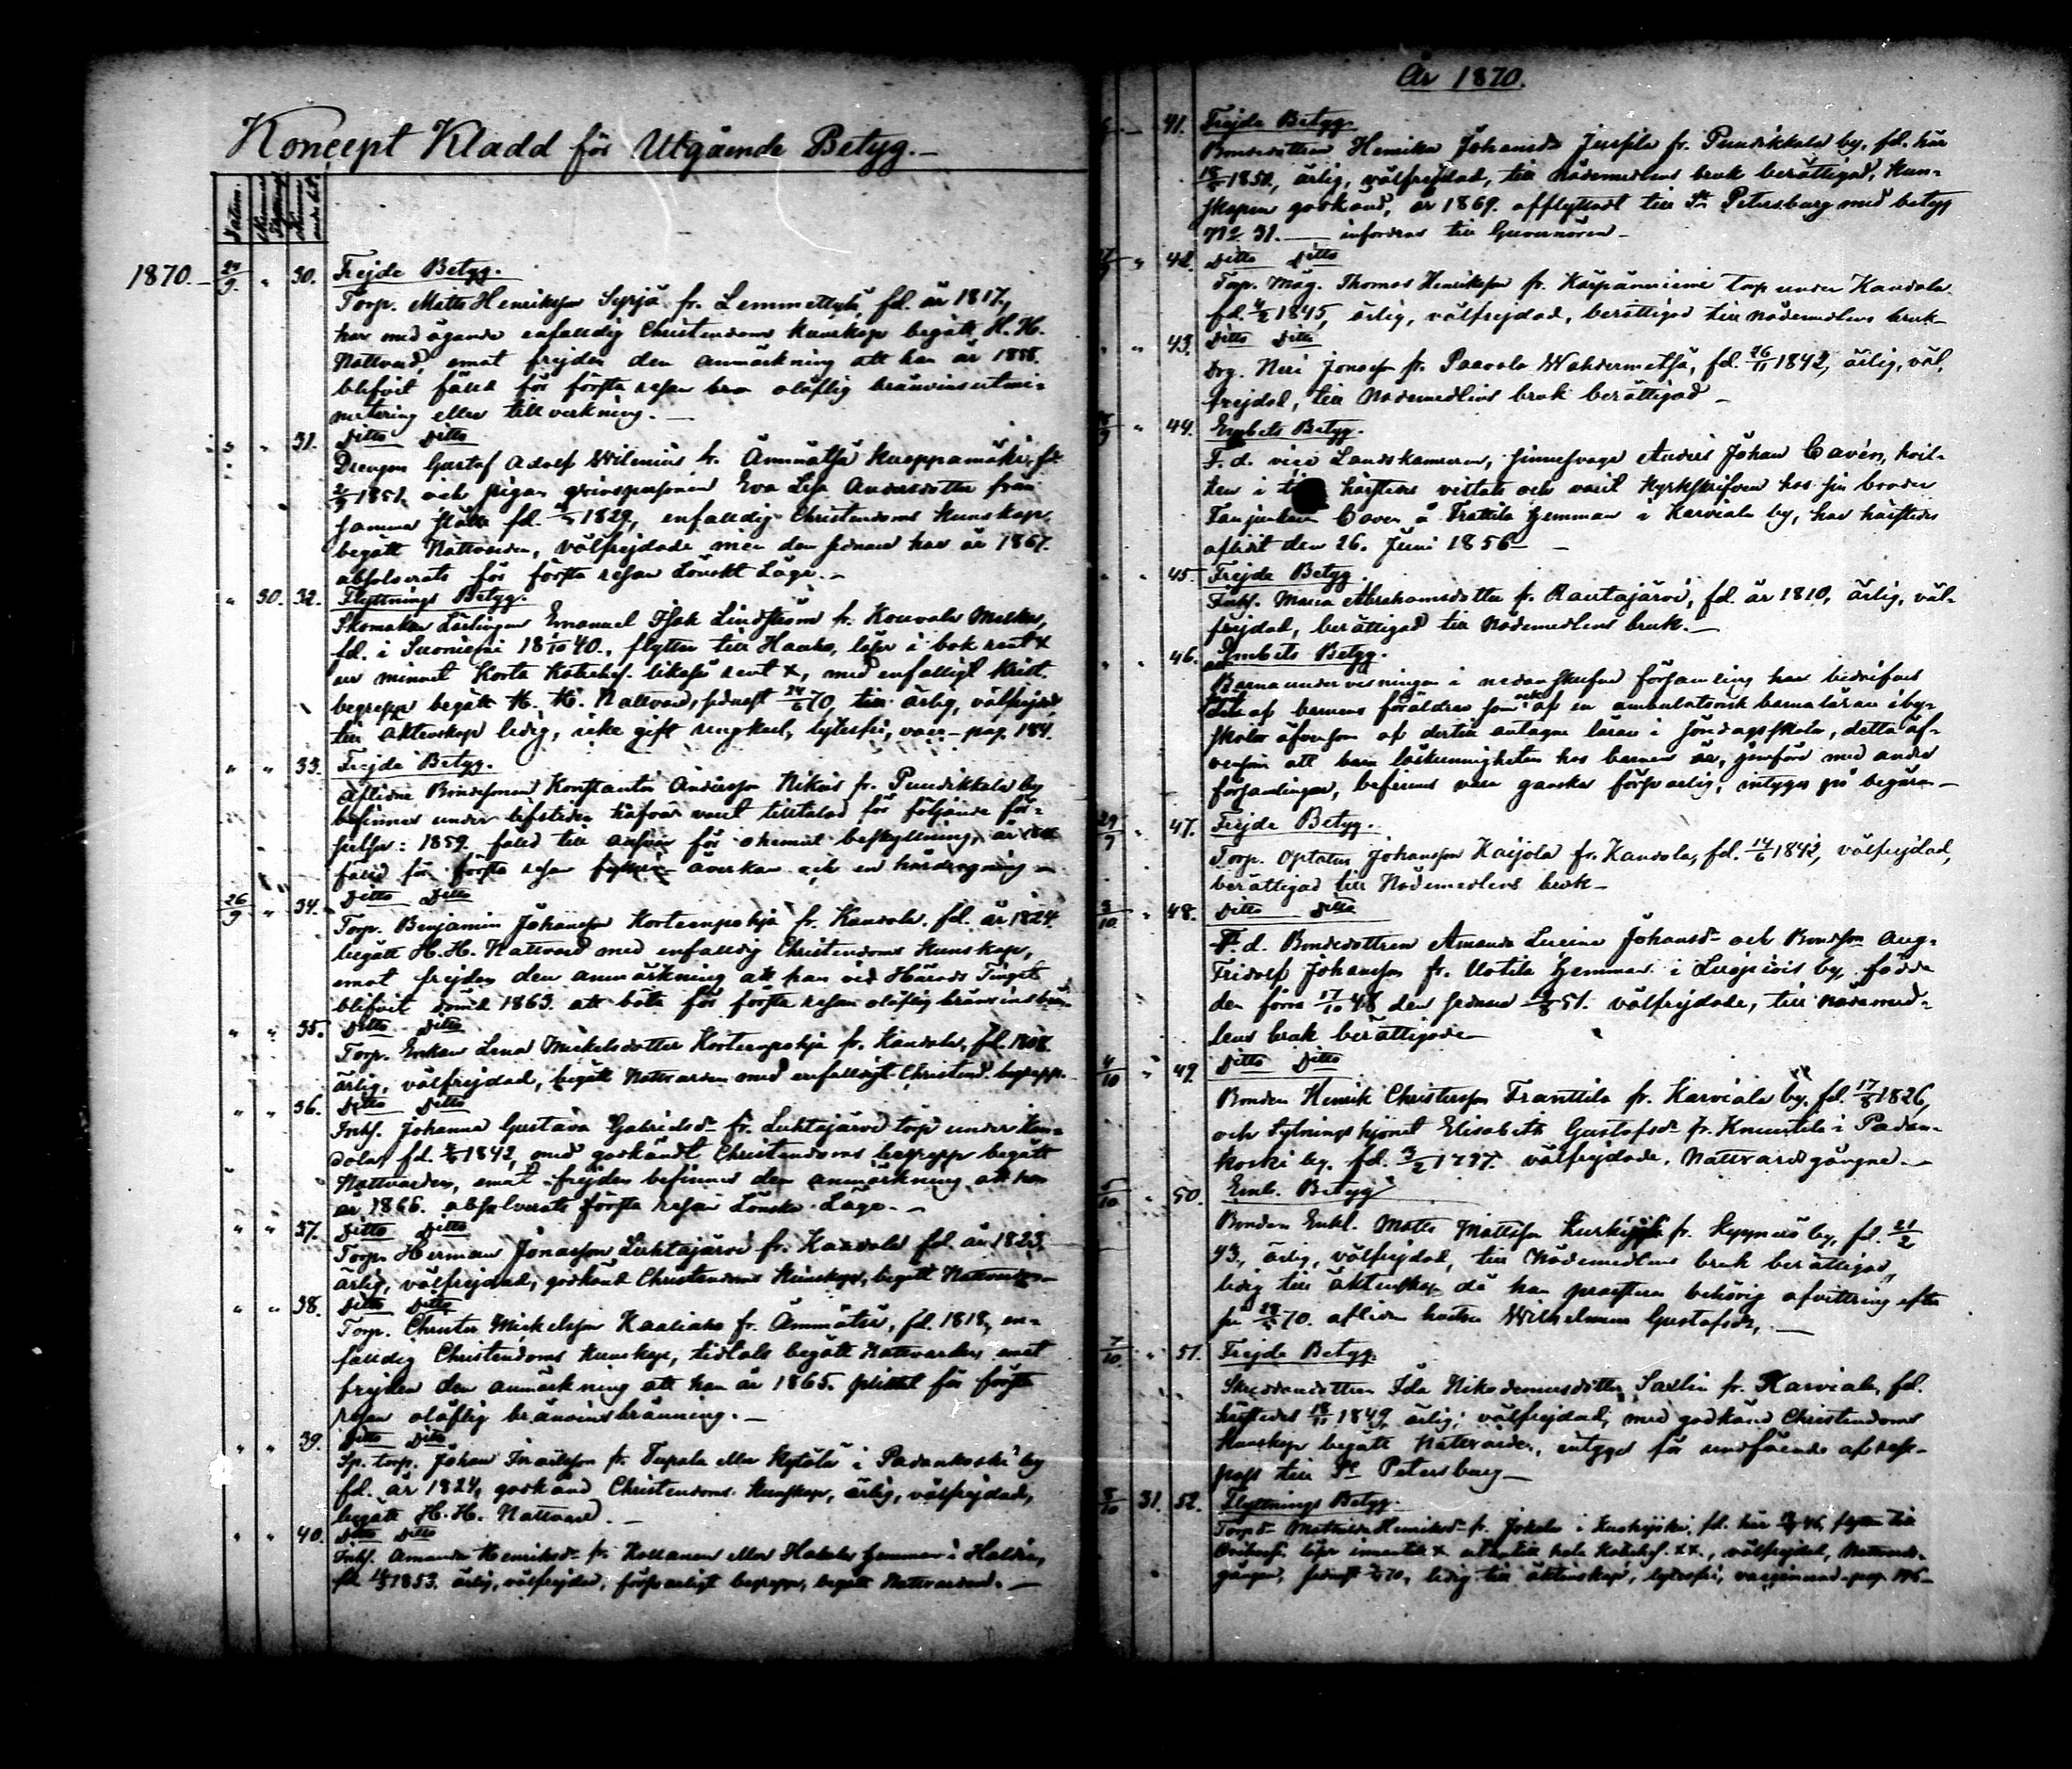 År 1870.
Koncept Kladd för Utgående Betyg.—
Datum.
1870.— 24/9. " 30. Frejde Betyg.
Torp. Matts Henriksson Syrjä fr. Lemmettylä, fd. år 1817,
har med ägande enfaldig Christendoms kunskap begått H. H.
Nattvard, emot frejden den anmärkning att han år 1858.
blifvit fälld för första resan bra olaflig bränvins utmi-
nutering eller tillverkning.—
" 31. Ditto Ditto
Drengen Gustaf Adolf Wilenius fr. Ämmätsä Kuoppamäki, fd.
1851. och pigan Eva Lisa Andersdotter från
samma ställe fd. 1829, enfaldig Christendoms kunskap,
begått Nattvarden, välfrejdade men den sednare har år 1867.
absolverats för första resan Lönskt Läge.—
" 30. 32. Flyttnings Betyg.
Skomakare Lärlingen Emanuel Isak Lindström fr. Kouvala
fd. i Suoniemi 18/10 40., flyttar till Hauho, läser i bok rent x
ur minnet Korta Kateches. likaså rent x, med enfaldigt krist.
begrepp begått H. H. Nattvard, sednast 24/6 70, ärlig, välfrejdad
till äktenskap ledig, icke gift lytesfri, vacc.— pag. 184.
" " 33. Frejde Betyg.
Aflidne Bondesonen Konstantin Andersson Nikus fr. Puntikkala by
befinnes under lifstiden häfva varit tilltalad för följande för-
seelser: 1859. fälld till ansvar för okemut beskyllning, år
fälld för första resan åverkan och en hårdragning —
26/9 " 34. Ditto Ditto
Torp. Benjamin Johansson Korteenpohja fr. Kandola. fd. år 1824.
begått H. H. Nattvard med enfaldig Christendoms kunskap,
emot frejden den anmärkning att han vid Härads Tinget
blifvit dömd 1863. att böta för första resan olaflig bränvinsbrän-
" " 35. Ditto Ditto
Torp. Enkan Lena Mickelsdotter Korteenpohja fr. Kandola, fd. 1808.
ärlig, välfrejdad, begått Nattvarden med enfaldigt Christend. begrepp.
" " 36. Ditto Ditto
Inhs. Johanna Gustava Gabrielsd. fr. Luhtajärvi torp under Kan-
dola, fd. 1842, med godkändt Christendoms begrepp begått
Nattvarden, emot frejden befinnes den anmärkning att hon
år 1866. absolverats första resan Lönska Läge.—
" " 37. Ditto Ditto
Torp. Herman Jonasson Luhtajärvi fr. Kandola fd. år 1823,
ärlig, välfrejdad, godkänd Christendoms kunskap, begått Nattvarden—
" " 38. Ditto Ditto
Torp. Christer Mickelsson Kaaliaho fr. Ämmätsä, fd. 1818, en-
faldig Christendoms kunskap, tidtals begått Nattvarden, emot
frejden den anmärkning att han år 1865. pliktat för första
resan olaflig bränvinsbränning.—
" " 39. Ditto Ditto
Sp. torp. Johan Israelsson fr. Tupala eller Kytölä i Padankoski by
fd. år 1824, godkänd Christendoms kunskap, ärlig, välfrejdad,
begått H. H. Nattvard.—
" " 40. Ditto Ditto
Inhs. Amanda Henriksd. fr. Hollanen eller Hakala hemman i Haltia,
fd. 1853. ärlig, välfrejdad, försvarligt begrepp, begått Nattvarden.—
41. Frejde Betyg.
Bondedottren Henrika Johansd. Jussila fr. Puntikkala by, fd. här
1850, ärlig, välfrejdad, till nådemedlens bruk berättigad, kun-
skapen godkänd, år 1869. afflyttadt till St. Petersburg med betyg
No 31. — infordras till Guvernören—
" 42. Ditto Ditto
Torp. Måg. Thomas Henriksson fr. Karpanniemi torp under Kandola
fd. 4/2 1845, ärlig, välfrejdad, berättigad till nådemedlens bruk—
" " 43. Ditto Ditto
Drg. Jonasson fr. Paavola Wahdermetsä, fd. 26/11 1842, ärlig, väl-
frejdad, till Nådemedlens bruk berättigad—
" 44. Embets Betyg.
F. d. vice Landskamreren, sinnessvage Anders Johan Cavén, hvil-
ken i härstedes vistats och varit kyrkskrifven hos sin broder
Fanjunkaren Caven å Frattila hemman i Karviala by, har härstedes
aflidit den 26. Juni 1856—
" " 45. Frejde Betyg.
Inhs. Maria Abrahamsdotter fr. Rautajärvi, fd. år 1810, ärlig, väl-
frejdad, berättigad till Nådemedlens bruk.—
" " 46. Embets Betyg.
Barnaundervisningen i nedanskrefne församling har bedrifvas
dels af barnens föräldrar som ock af en ambulatorisk barnalärare i by-
skolor äfvensom af dertill antagna lärare i söndagsskola, detta äf-
vensom att barn läskunnigheten hos barnen är, jemförd med andra
församlingar, befinnes vara ganska försvarlig, intygas på begäran—
29/9 " 47. Frejde Betyg.
Torp. Optatus Johansson Kaijola fr. Kandola, fd. 14/6 1842, välfrejdad,
berättigad till Nådemedlens bruk—
3/10 " 48. Ditto Ditto
F. d. Bondedottren Amanda Lovisa Johansd. och Bondeson Aug.
Fridolf Johansson fr. Uotila hemman i Luopiois by, födde
den förra 17/10 48 den sednare 51. välfrejdade, till nådemed-
lens bruk berättigade—
4/10 " 49. Ditto Ditto
Bonden Henrik Christersson Franttila fr. Karviala by, fd. 17/8 1826,
och sytningshjonet Elisabeth Gustafsd. fr. Knuutila i Padan-
koski by. fd. 3/2 1797. välfrejdade. Nattvardsgångne.—
5/10 " 50. Emb. Betyg
Bonden Enkl. Matts Mattsson fr. Kyynärö by, fd. 21/2
43, ärlig, välfrejdad, till Nådemedlens bruk berättigad,
ledig till äktenskap då han præsterar behörig afvittring efter
sin 70. aflidna hustru Wilhelmina Gustafsdr,—
7/10 " 51. Frejde Betyg.
Skräddaredottren Ida Nikodemusdotter Saxlin fr. Karviala, fd.
härstedes 18/11 1849, ärlig, välfrejdad, med godkänd Christendoms
kunskap begått Nattvarden, intygas för undfående af rese-
pass till St. Petersburg—
8/10 31. 52. Flyttnings Betyg.
Torpd. Mathilda Henriksd. fr. Jokela i Kuohijoki, fd. här 46, flyttar till
läser innantill x utantill hela Katekes. xx., välfrejdad, Nattvards-
gången, sednast 70, ledig till äktenskap, lytesfri, vaccinerad. pag. 196—